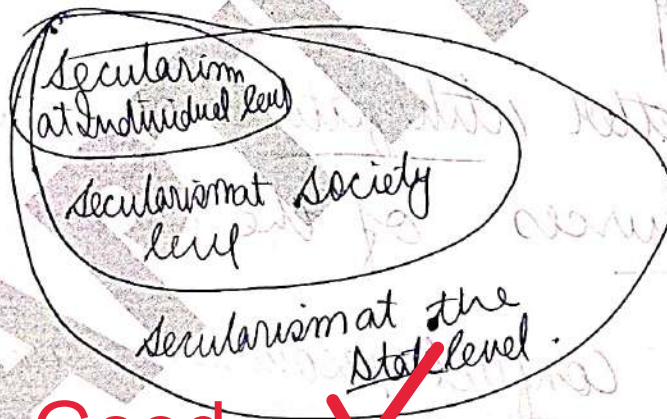 Secularism
at Individual level
Secularism at Society
level
Secularism at the
State level.
Good